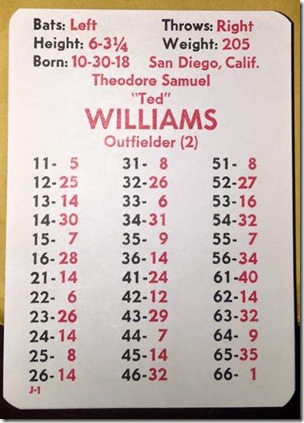 Bats: Left Throws: Right
Height: 6-3¼ Weight: 205
Born: 10-30-18 San Diego, Calif.
Theodore Samuel
"Ted"
WILLIAMS
Outfielder (2)
11- 5 31- 8 51- 8
12-25 32-26 52-27
13-14 33- 6 53-16
14-30 34-31 54-32
15- 7 35- 9 55- 7
16-28 36-14 56-34
21-14 41-24 61-40
22- 6 42-12 62-14
23-26 43-29 63-32
24-14 44- 7 64- 9
25- 8 45-14 65-35
26-14 46-32 66- 1
J-1